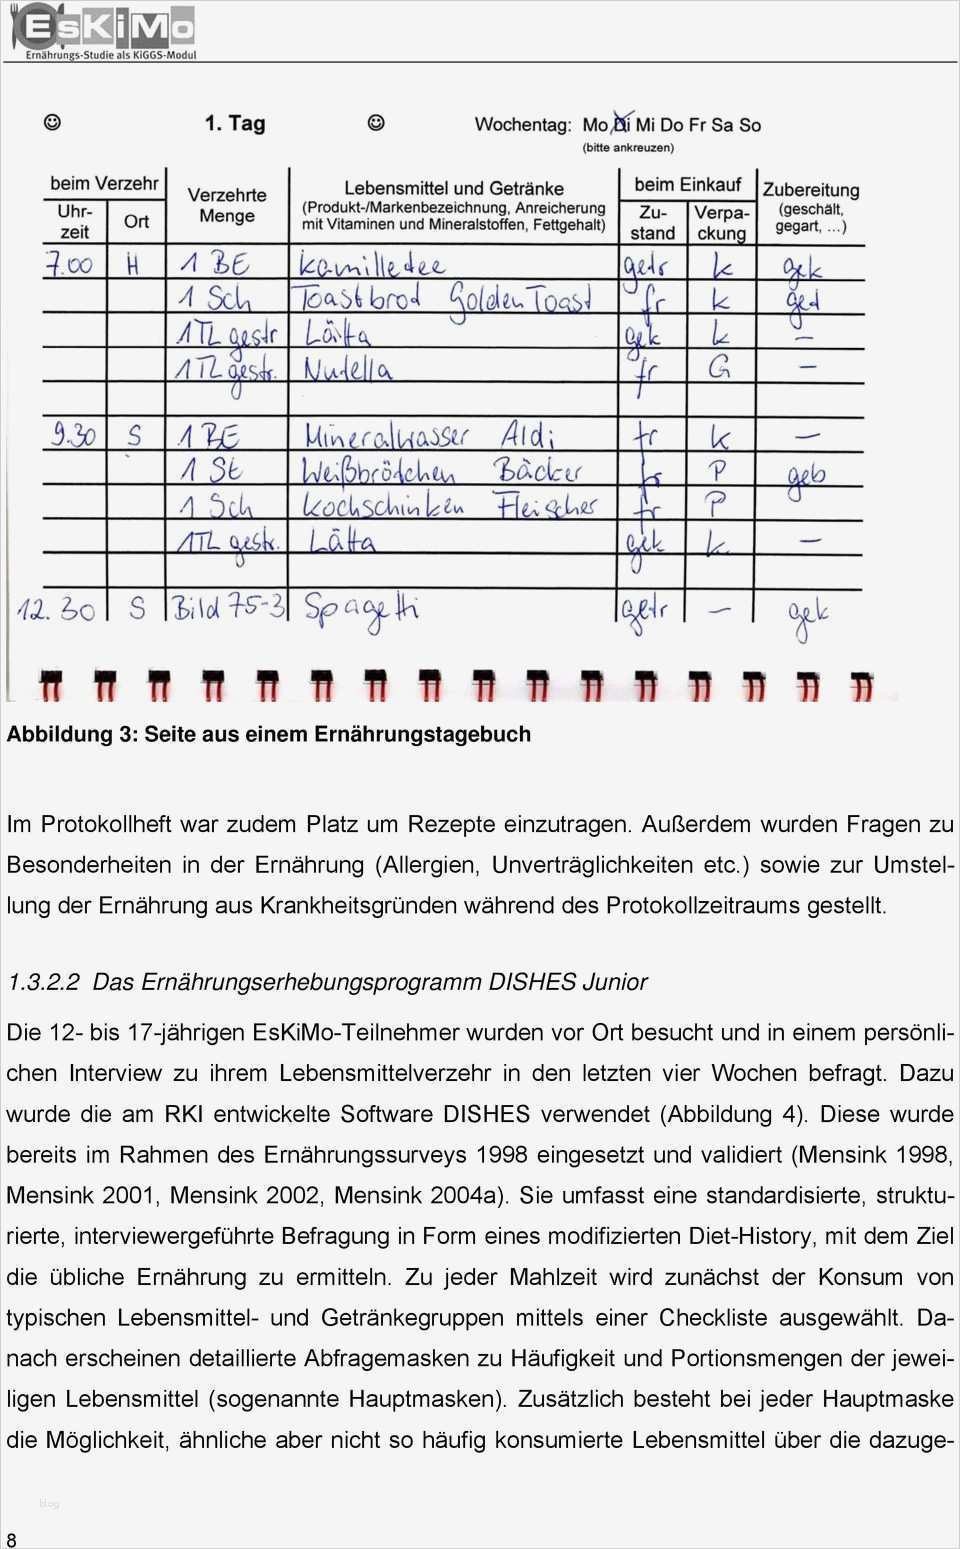 EsKiMo
Ernährungs-Studie als KiGGS-Modul
☺ 1. Tag ☺ Wochentag: Mo Di Mi Do Fr Sa So
(bitte ankreuzen)
beim Verzehr Verzehrte Menge Lebensmittel und Getränke beim Einkauf Zubereitung
(Produkt-/Markenbezeichnung, Anreicherung mit Vitaminen und Mineralstoffen, Fettgehalt) (geschält, gegart, ...)
Uhr-zeit Ort Zu-stand Verpa-ckung
7.00 H 1 BE Kamilletee getr k gek
1 Sch Toastbrod Golden Toast fr k get
1TL gestr Lätta gek k –
1TL gestr. Nutella fr G –
9.30 S 1 BE Mineralwasser Aldi fr k –
1 St Weißbrötchen Bäcker fr P geb
1 Sch Kochschinken Fleischer fr P
1TL gestr. Lätta gek k. –
12.30 S Bild 75-3 Spagetti getr – gek
Abbildung 3: Seite aus einem Ernährungstagebuch
Im Protokollheft war zudem Platz um Rezepte einzutragen. Außerdem wurden Fragen zu
Besonderheiten in der Ernährung (Allergien, Unverträglichkeiten etc.) sowie zur Umstel-
lung der Ernährung aus Krankheitsgründen während des Protokollzeitraums gestellt.
1.3.2.2 Das Ernährungserhebungsprogramm DISHES Junior
Die 12- bis 17-jährigen EsKiMo-Teilnehmer wurden vor Ort besucht und in einem persönli-
chen Interview zu ihrem Lebensmittelverzehr in den letzten vier Wochen befragt. Dazu
wurde die am RKI entwickelte Software DISHES verwendet (Abbildung 4). Diese wurde
bereits im Rahmen des Ernährungssurveys 1998 eingesetzt und validiert (Mensink 1998,
Mensink 2001, Mensink 2002, Mensink 2004a). Sie umfasst eine standardisierte, struktu-
rierte, interviewergeführte Befragung in Form eines modifizierten Diet-History, mit dem Ziel
die übliche Ernährung zu ermitteln. Zu jeder Mahlzeit wird zunächst der Konsum von
typischen Lebensmittel- und Getränkegruppen mittels einer Checkliste ausgewählt. Da-
nach erscheinen detaillierte Abfragemasken zu Häufigkeit und Portionsmengen der jewei-
ligen Lebensmittel (sogenannte Hauptmasken). Zusätzlich besteht bei jeder Hauptmaske
die Möglichkeit, ähnliche aber nicht so häufig konsumierte Lebensmittel über die dazuge-
blog
8